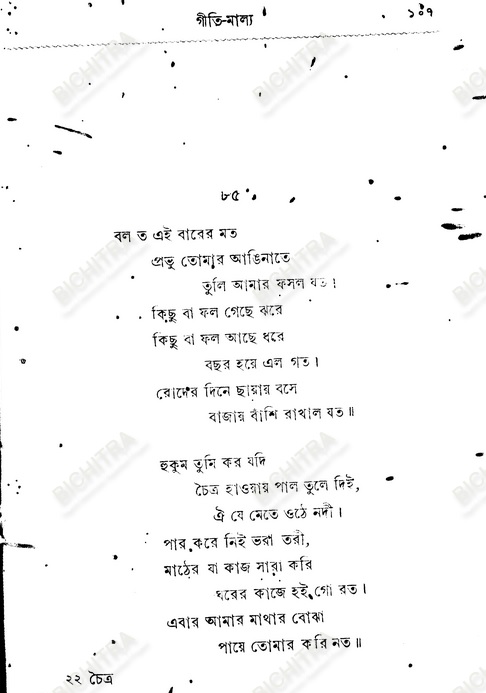 গীতি-মাল্য ১০৭
৮৫
বল ত এই বারের মত
প্রভু তোমার আঙিনাতে
তুলি আমার ফসল যত!
কিছু বা ফল গেছে ঝরে
কিছু বা ফল আছে ধরে
বছর হয়ে এল গত।
রোদের দিনে ছায়ায় বসে
বাজায় বাঁশি রাখাল যত॥
হুকুম তুমি কর যদি
চৈত্র হাওয়ায় পাল তুলে দিই,
ঐ যে মেতে ওঠে নদী।
পার করে নিই ভরা তরী,
মাঠের যা কাজ সারা করি
ঘরের কাজে হই গো রত।
এবার আমার মাথার বোঝা
পায়ে তোমার করি নত॥
২২ চৈত্র
BICHITRA